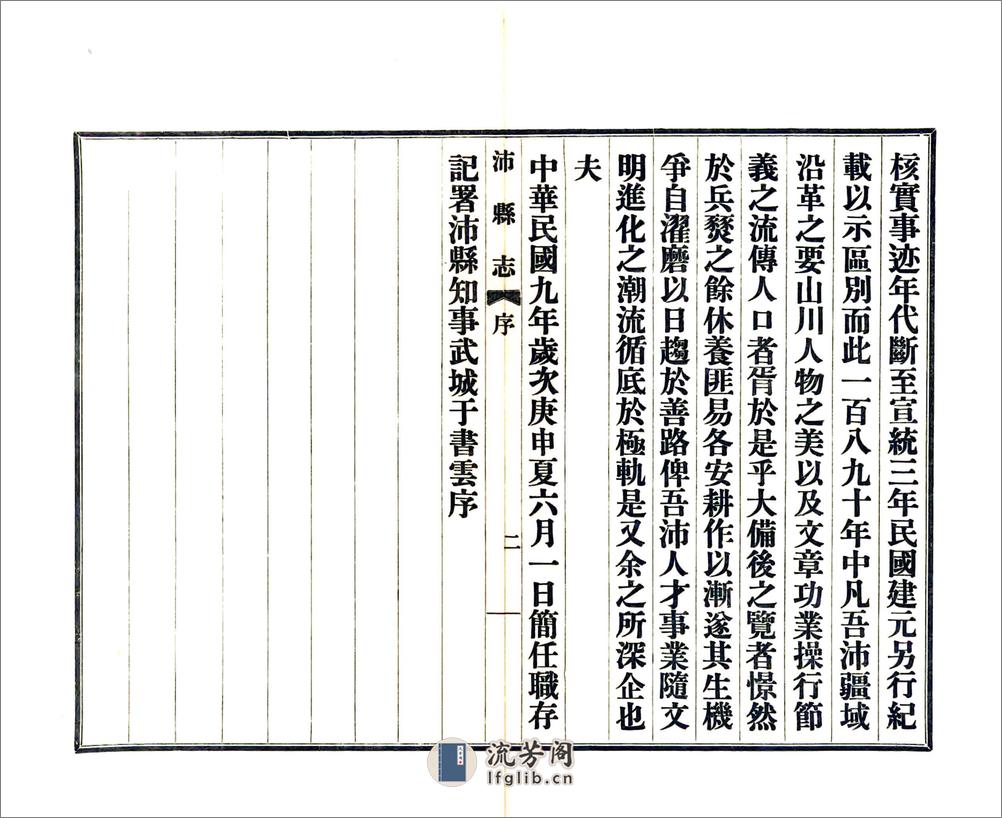 核實事迹年代斷至宣統三年民國建元另行紀
載以示區別而此一百八九十年中凡吾沛疆域
沿革之要山川人物之美以及文章功業操行節
義之流傳人口者胥於是乎大備後之覽者憬然
於兵燹之餘休養匪易各安耕作以漸遂其生機
爭自濯磨以日趨於善路俾吾沛人才事業隨文
明進化之潮流循底於極軌是又余之所深企也
夫
中華民國九年歲次庚申夏六月一日簡任職存
沛縣志 序 二
記署沛縣知事武城于書雲序
流芳阁
lfglib.cn